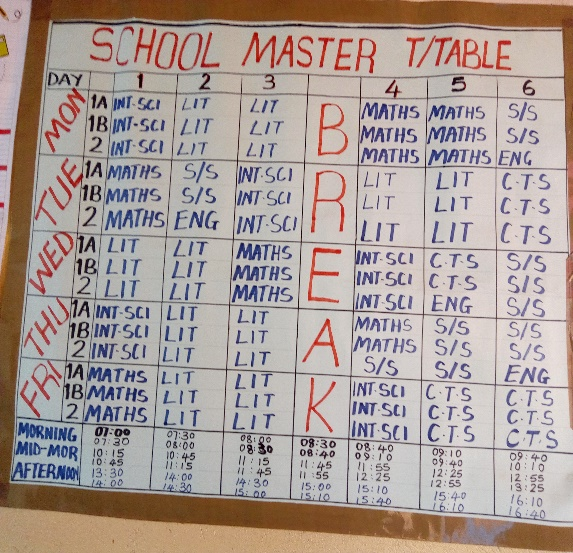 SCHOOL MASTER T/TABLE
DAY 1 2 3 4 5 6
MON 1A INT-SCI LIT LIT B MATHS MATHS S/S
1B INT-SCI LIT LIT MATHS MATHS S/S
2 INT-SCI LIT LIT MATHS MATHS ENG
TUE 1A MATHS S/S INT-SCI R LIT LIT C.T.S
1B MATHS S/S INT-SCI LIT LIT C.T.S
2 MATHS ENG INT-SCI LIT LIT C.T.S
WED 1A LIT LIT MATHS E INT-SCI C.T.S S/S
1B LIT LIT MATHS INT-SCI C.T.S S/S
2 LIT LIT MATHS INT-SCI ENG S/S
THU 1A INT-SCI LIT LIT A MATHS S/S S/S
1B INT-SCI LIT LIT MATHS S/S S/S
2 INT-SCI LIT LIT S/S S/S ENG
FRI 1A MATHS LIT LIT K INT-SCI C.T.S C.T.S
1B MATHS LIT LIT INT-SCI C.T.S C.T.S
2 MATHS LIT LIT INT-SCI C.T.S C.T.S
MORNING 07:00 07:30 08:00 08:30 08:40 09:10 09:40
07:30 08:00 08:30 08:40 09:10 09:40 10:10
MID-MOR 10:15 10:45 11:15 11:45 11:55 12:25 12:55
10:45 11:15 11:45 11:55 12:25 12:55 13:25
AFTERNOON 13:30 14:00 14:30 15:00 15:10 15:40 16:10
14:00 14:30 15:00 15:10 15:40 16:10 16:40